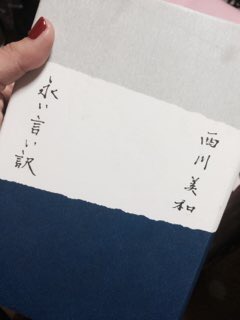 西川美和
永い言い訳